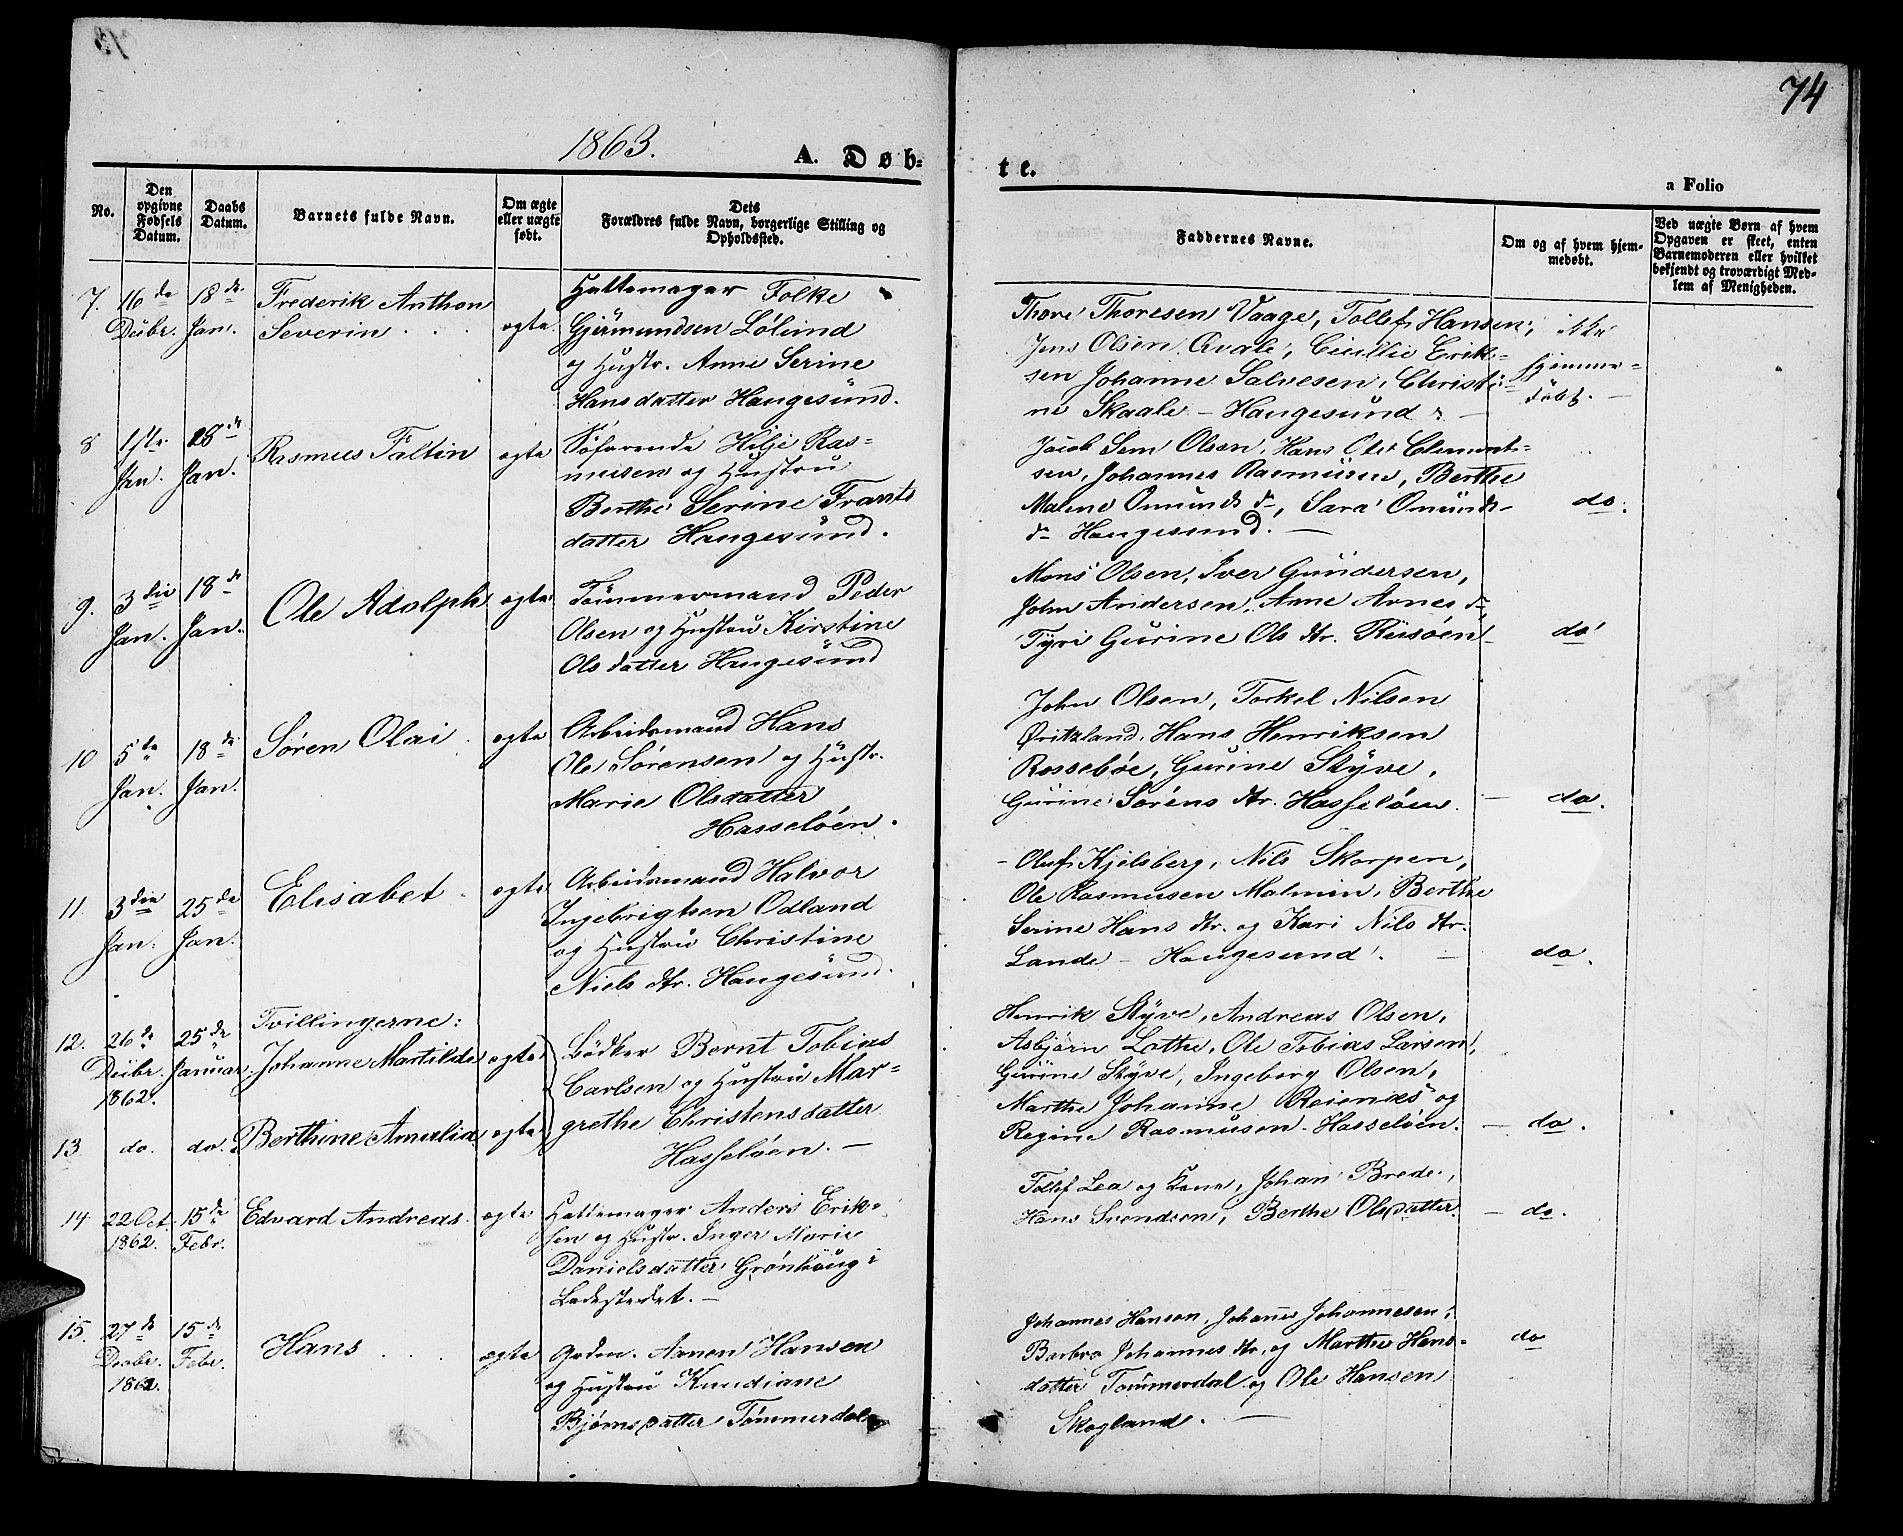 74
1863.
A. Døb-
te.
a Folio
No.
Den opgivne Fødsels Datum.
Daabs Datum.
Barnets fulde Navn.
Om ægte eller uægte født.
Dets Forældres fulde Navn, borgerlige Stilling og Opholdssted.
Faddernes Navne.
Om og af hvem hjemmedøbt.
Ved uægte Børn af hvem Opgaven er skeet, enten Barnemoderen eller hvilket bekjendt og troværdigt Medlem af Menigheden.
7. 16de Decbr. 18de Jan.
Frederik Anthon
Severin
ægte
Hattemager Folke
Gjermundsen Lølund
og Hustr. Anne Serine
Hansdatter Haugesund.
Thore Thoresen Vaage, Tollef Hansen,
Jens Olsen Qvale, Cicilie Erik-
sen Johanne Salvesen, Christi-
ne Skaale - Haugesund
ikke
hjemme-
døbt.
8 1ste Jan. 28de Jan.
Rasmus Faltin
ægte
Søfarende Hilje Ras-
musen og Hustru
Berthe Serine Frants
datter Haugesund.
Jacob Sem Olsen, Hans Olai Clemet-
sen, Johannes Rasmusen, Berthe
Malene Omunds dr, Sara Omunds-
dr Haugesund. -
do.
9. 3die Jan. 18de Jan.
Ole Adolph
ægte
Tømmermand Peder
Olsen og Hustru Kirstine
Olsdatter Haugesund
Mons Olsen, Iver Gundersen,
John Andersen, Anne Arnes dr
Tyri Gurine Ols dtr. Risøen
do
10 5te Jan. 18de Jan.
Søren Olai
ægte
Arbeidsmand Hans
Ole Sørensen og Hustr.
Marie Olsdatter
Hasseløen.
John Olsen, Torkel Nilsen
Qvitzland, Hans Henriksen
Rossebøe, Gurine Skyve,
Gurine Sørens dtr. Hasseløen. -
do.
11. 3die Jan. 25de Jan.
Elisabet
ægte
Arbeidsmand Halvor
Ingebrigtsen Odland
og Hustru Christine
Niels dtr. Haugesund.
Oluf Kjelsberg, Nils Skorpen,
Ole Rasmusen Malmin, Berthe
Serine Hans dtr. og Kari Nils dtr.
Lande - Haugesund. -
do.
12. 26de Decbr. 1862. 25de Januar.
Tvillingerne:
Johanne Martilde
ægte
Bødker Bernt Tobias
Carlsen og Hustru Mar-
grethe Christensdatter
Hasseløen. -
Henrik Skyve, Andreas Olsen,
Asbjørn Lothe, Ole Tobias Larsen,
Gurine Skyve, Ingeborg Olsen,
Marthe Johanne Reienæs og
Regine Rasmusen - Hasseløen. -
do.
13. do. do.
Berthine Amalia
ægte
14 22 Oct. 1862. 15de Febr.
Edvard Andreas.
ægte
Hattemager Anders Erik-
sen og Hustr. Inger Marie
Danielsdatter Grønhaug i
Ladestedet. -
Tollef Lea og Kone, Johan Brede,
Hans Svendsen, Berthe Olsdatter. -
do.
15. 27de Decbr. 1862. 15de Febr.
Hans
ægte
Grdm. Aamon Hansen
og Hustru Knudiane
Bjørnsdatter Tømmerdal
Johannes Hansen, Johannes Johannesen,
Barbro Johannes dtr. og Marthe Hans-
datter Tømmerdal og Ole Hansen
Skogland. -
do